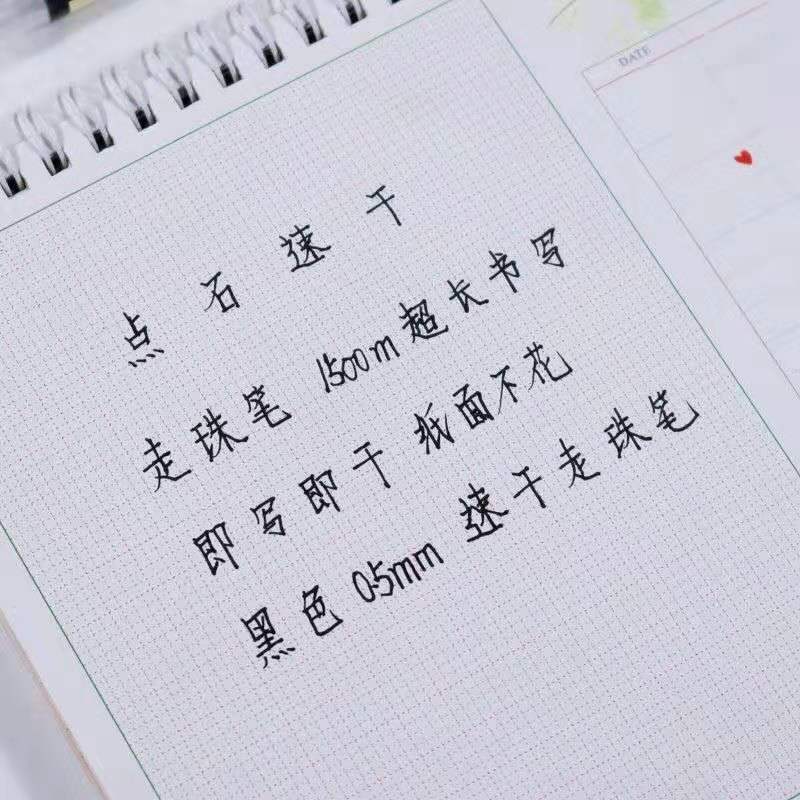 点石速干
走珠笔 1500m超长书写
即写即干 纸面不花
黑色 0.5mm 速干走珠笔
DATE